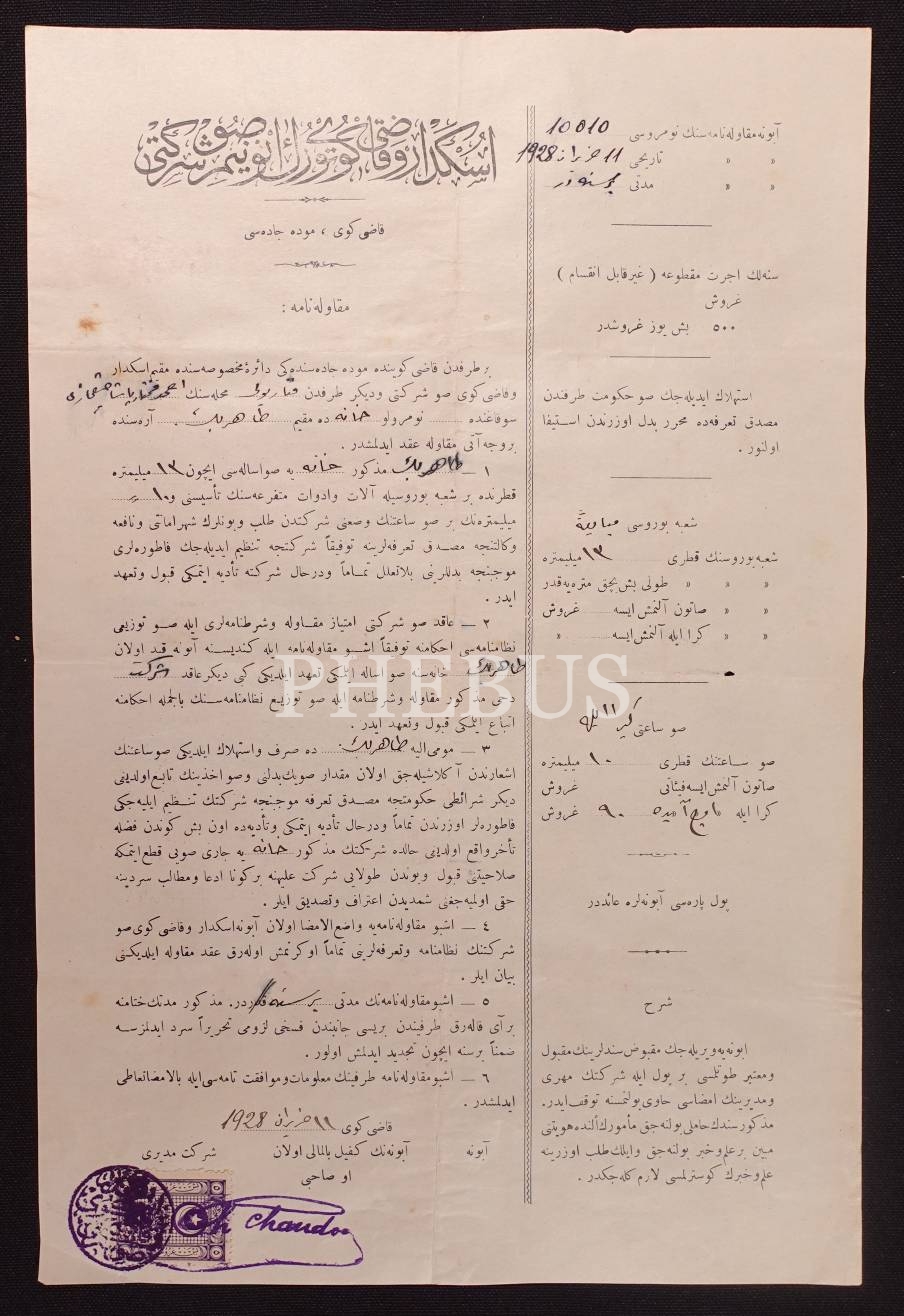 اسكدار وقاضی‌كویی تورك آنونیم صو شركتی
قاضی كوی ، موده جاده‌سی
مقاوله نامه :
بر طرفدن قاضی كوینده موده جاده‌سنده‌كی دائرهٔ مخصوصه‌سنده مقیم اسكدار
وقاضی كوی صو شركتی ودیكر طرفدن محله‌سنك احمد مختار پاشا
سوقاغنده نومرولو خانه ده مقیم طاهر بك آره‌سنده
بروجه آتی مقاوله عقد ایدلمشدر .
١ — طاهر بك مذكور خانه یه صو اساله‌سی ایچون ١٣ میلیمتره
قطرنده بر شعبه بوروسیله آلات وادوات متفرعه‌سنك تأسیسنی و ١٠
میلیمتره‌نك بر صو ساعتنك وضعنی شركتدن طلب وبونلرك شهر امانتی ونافعه
وكالتنجه مصدق تعرفه‌لرینه توفیقاً شركتجه تنظیم ایدیله‌جك فاطوره‌لری
موجبنجه بدللرنی بلاتعلل تماماً ودرحال شركته تأدیه ایتمكی قبول وتعهد
ایدر .
٢ — عاقد صو شركتی امتیاز مقاوله وشرطنامه‌لری ایله صو توزیعی
نظامنامه‌سی احكامنه توفیقاً اشبو مقاوله‌نامه ایله كندیسنه آبونه قید اولان
طاهر بك خانه‌سنه صو اساله ایتمكی تعهد ایلدیكی كی دیكر عاقد شركت
دخی مذكور مقاوله وشرطنامه ایله صو توزیع نظامنامه‌سنك بالجمله احكامنه
اتباع ایتمكی قبول وتعهد ایدر .
٣ — مومی الیه طاهر بك ده صرف واستهلاك ایلدیكی صو ساعتنك
اشعارندن آكلاشیله‌جق اولان مقدار صویك بدلنی وصو اخذینك تابع اولدیغی
دیكر شرائطی حكومتجه مصدق تعرفه موجبنجه شركتك تنظیم ایلیه‌جكی
فاطوره‌لر اوزرندن تماماً ودرحال تأدیه ایتمكی وتأدیه‌ده اون بش كوندن فضله
تأخر واقع اولدیغی حالده شركتك مذكور خانه یه جاری صویی قطع ایتمكه
صلاحیتنی قبول وبوندن طولایی شركت علیهنه بركونا ادعا ومطالب سردینه
حقی اولمیه‌جغنی شمدیدن اعتراف وتصدیق ایلر .
٤ — اشبو مقاوله‌نامه‌یه واضع الامضا اولان آبونه اسكدار وقاضی كوی صو
شركتنك نظامنامه وتعرفه‌لرینی تماماً اوكرنمش اوله‌رق عقد مقاوله ایلدیكنی
بیان ایلر .
٥ — اشبو مقاوله‌نامه‌نك مدتی بر سنه قدر در. مذكور مدتك ختامنه
بر آی قاله‌رق طرفیندن بریسی جانبندن فسخی لزومی تحریراً سرد ایدلمزسه
ضمناً بر سنه ایچون تجدید ایدلمش اولور .
٦ — اشبو مقاوله‌نامه طرفینك معلومات وموافقت تامه‌سی ایله بالامضا تعاطی
ایدلمشدر .
قاضی كوی ١١ حزیران 1928
آبونه آبونه‌نك كفیل بالمالی اولان شركت مدیری
او صاحی
Chandon
آبونه مقاوله‌نامه‌سنك نومروسی 10010
» » تاریخی 11 حزیران 1928
» » مدتی بر سنه در
سنه‌لك اجرت مقطوعه ( غیر قابل انقسام )
غروش
٥٠٠ بش یوز غروشدر
استهلاك ایدیله‌جك صو حكومت طرفندن
مصدق تعرفه‌ده محرر بدل اوزرندن استیفا
اولنور .
شعبه بوروسی
شعبه بوروسنك قطری ١٣ میلیمتره
» » » طولی بش بچق متره‌یه قدر
» » صاتون آلنمش ایسه غروش
» » كرا ایله آلنمش ایسه »
صو ساعتی كیرا ایله
صو ساعتنك قطری ١٠ میلیمتره
صاتون آلنمش ایسه فیئاتی غروش
كرا ایله اوچ آیده ٩٠ غروش
پول پاره‌سی آبونه‌لره عائددر
شرح
ابونه‌یه ویریله‌جك مقبوض سندلرینك مقبول
ومعتبر طوتلمسی بر پول ایله شركتك مهری
ومدیرینك امضاسی حاوی بولنمسنه توقف ایدر.
مذكور سندك حاملی بولنه‌جق مأمورك النده هویتنی
مبین بر علم وخبر بولنه‌جق وایلك طلب اوزرینه
علم وخبرك كوسترلمسی لازم كله‌جكدر .
PHEBUS